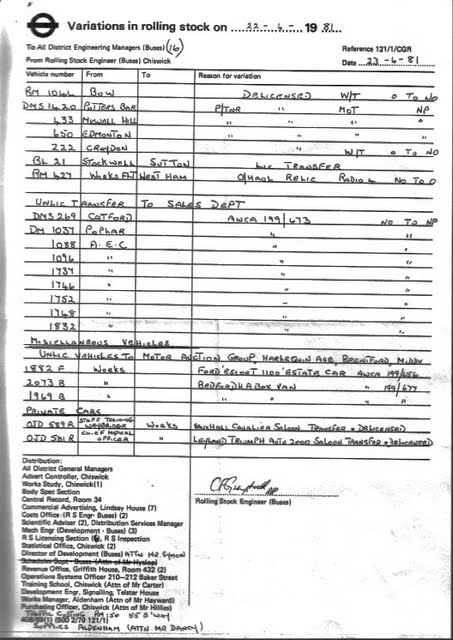 Variations in rolling stock on 22-6-1981.
To All District Engineering Managers (Buses) (16) Reference 121/1/CGR
From Rolling Stock Engineer (Buses) Chiswick Date 23-6-81
Vehicle number From To Reason for variation
RM 1046 BOW DELICENSED W/T O TO NO
DMS 1420 POTTERS BAR P/TNR MOT NP
433 MUSWALL HILL " " "
650 EDMONTON " " "
222 CROYDON " W/T O TO NO
BL 21 STOCKWALL SUTTON LIC TRANSFER
RM 427 WORKS A/T WEST HAM O/HAUL RELIC RADIO NO TO O
UNLIC TRANSFER TO SALES DEPT
DMS 269 CATFORD AWCA 199/673 NO TO NP
DM 1037 POPLAR " "
1088 A.E.C " "
1096 " " "
1737 " " "
1746 " " "
1752 " " "
1748 " " "
1832 " " "
MISCELLANEOUS VEHICLES
UNLIC VEHICLES TO MOTOR AUCTION GROUP, HARLEQUIN AVE, BRENTFORD, MIDDX
1882 F WORKS FORD 'ESCORT 1100' ESTATE CAR AWCA 199/656
2073 B " BEDFORD HA BOX VAN " 199/677
1969 B " " "
PRIVATE CARS
OJD 589 R STAFF TRAINING WORKS VAUXHALL CAVALIER SALOON TRANSFER & DELICENSED
OJD 581 R CHIEF MEDICAL OFFICER " LEYLAND TRIUMPH AUTO 2000 SALOON TRANSFER & DELICENSED
Distribution:
All District General Managers
Advert Controller, Chiswick
Works Study, Chiswick(1)
Body Spec Section
Central Record, Room 34
Commercial Advertising, Lindsay House (7)
Costs Office (R S Engr- Buses) (2)
Scientific Adviser (2), Distribution Services Manager
Mech Engr (Development - Buses) (3)
R S Licensing Section, R S Inspection
Statistical Office, Chiswick (2)
Director of Development (Buses) ATTN MR SYMON
Schedules Supt - Buses (Attn of Mr Hyslop)
Revenue Office, Griffith House, Room 432 (2)
Operations Systems Officer 210-212 Baker Street
Training School, Chiswick (Attn of Mr Carter)
Development Engr, Signalling, Telstar House
Works Manager, Aldenham (Attn of Mr Hayward)
Purchasing Officer, Chiswick (Attn of Mr Hillies)
TRAFFIC COSTING RM 150 55 B'WAY
(500 2/79 121/1)
SUPPLIES ALDENHAM (ATTN MR DANCY)
Rolling Stock Engineer (Buses)